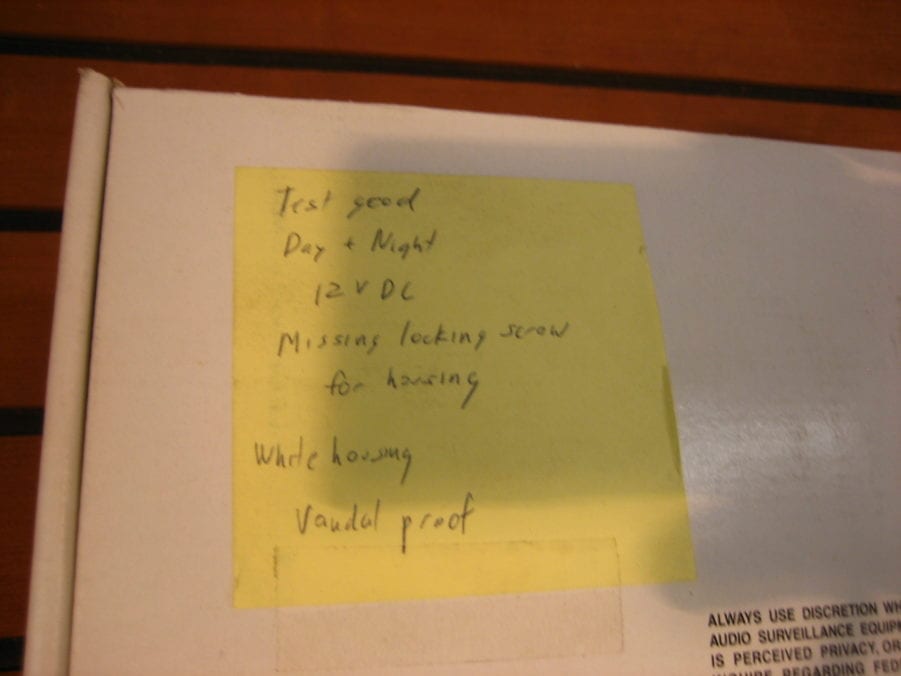 Test good
Day + Night
12 V DC
Missing locking screw
for housing
White housing
Vandal proof
ALWAYS USE DISCRETION
AUDIO SURVEILLANCE
IS PERCEIVED PRIVACY, OR
INQUIRE REGARDING